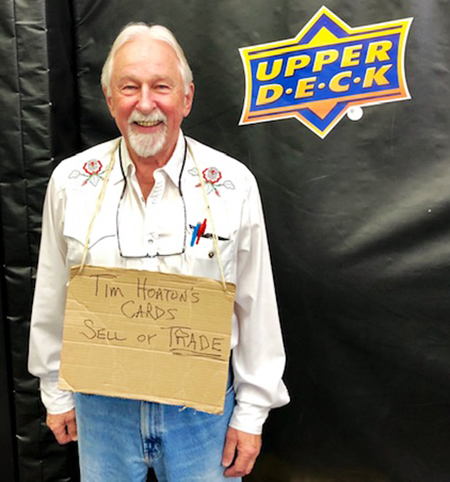 UPPER
D•E•C•K
TIM HORTON'S
CARDS
SELL or TRADE